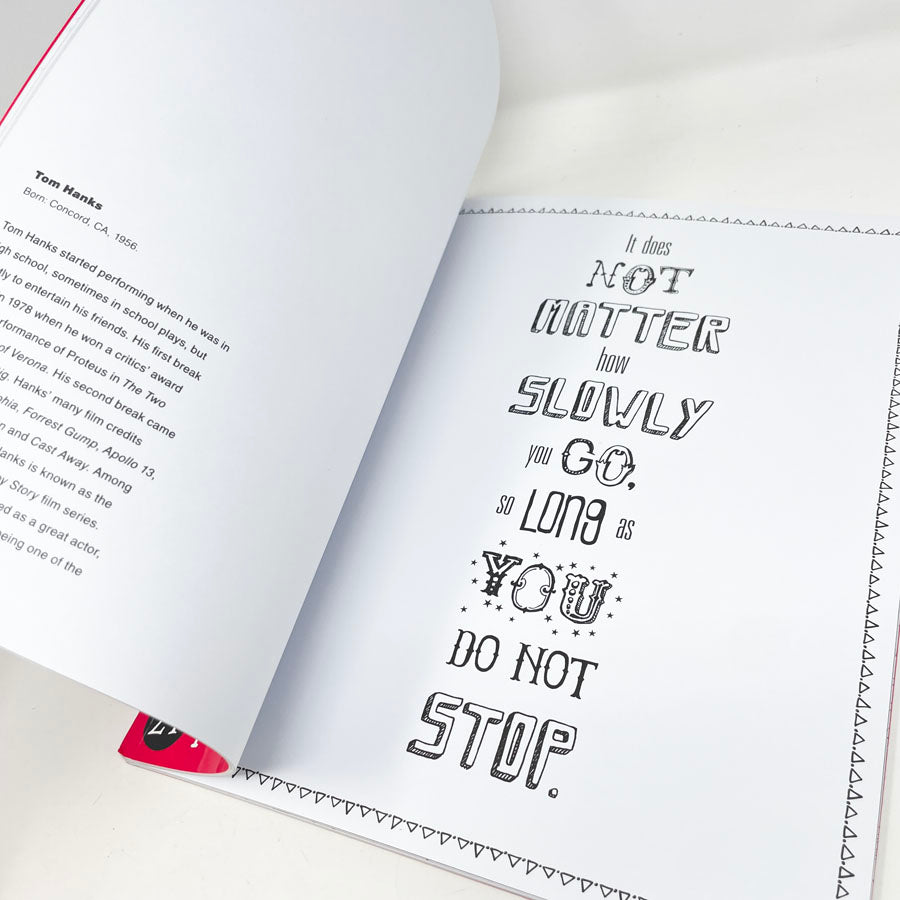 Tom Hanks
Born: Concord, CA, 1956.
Tom Hanks started performing when he was in
school, sometimes in school plays, but
to entertain his friends. His first break
1978 when he won a critics' award
of Proteus in The Two
of Verona. His second break came
Hanks' many film credits
Forrest Gump, Apollo 13,
and Cast Away. Among
Hanks is known as the
Story film series.
as a great actor,
being one of the
It does
NOT
MATTER
how
SLOWLY
you GO,
so LONG as
YOU
DO NOT
STOP.